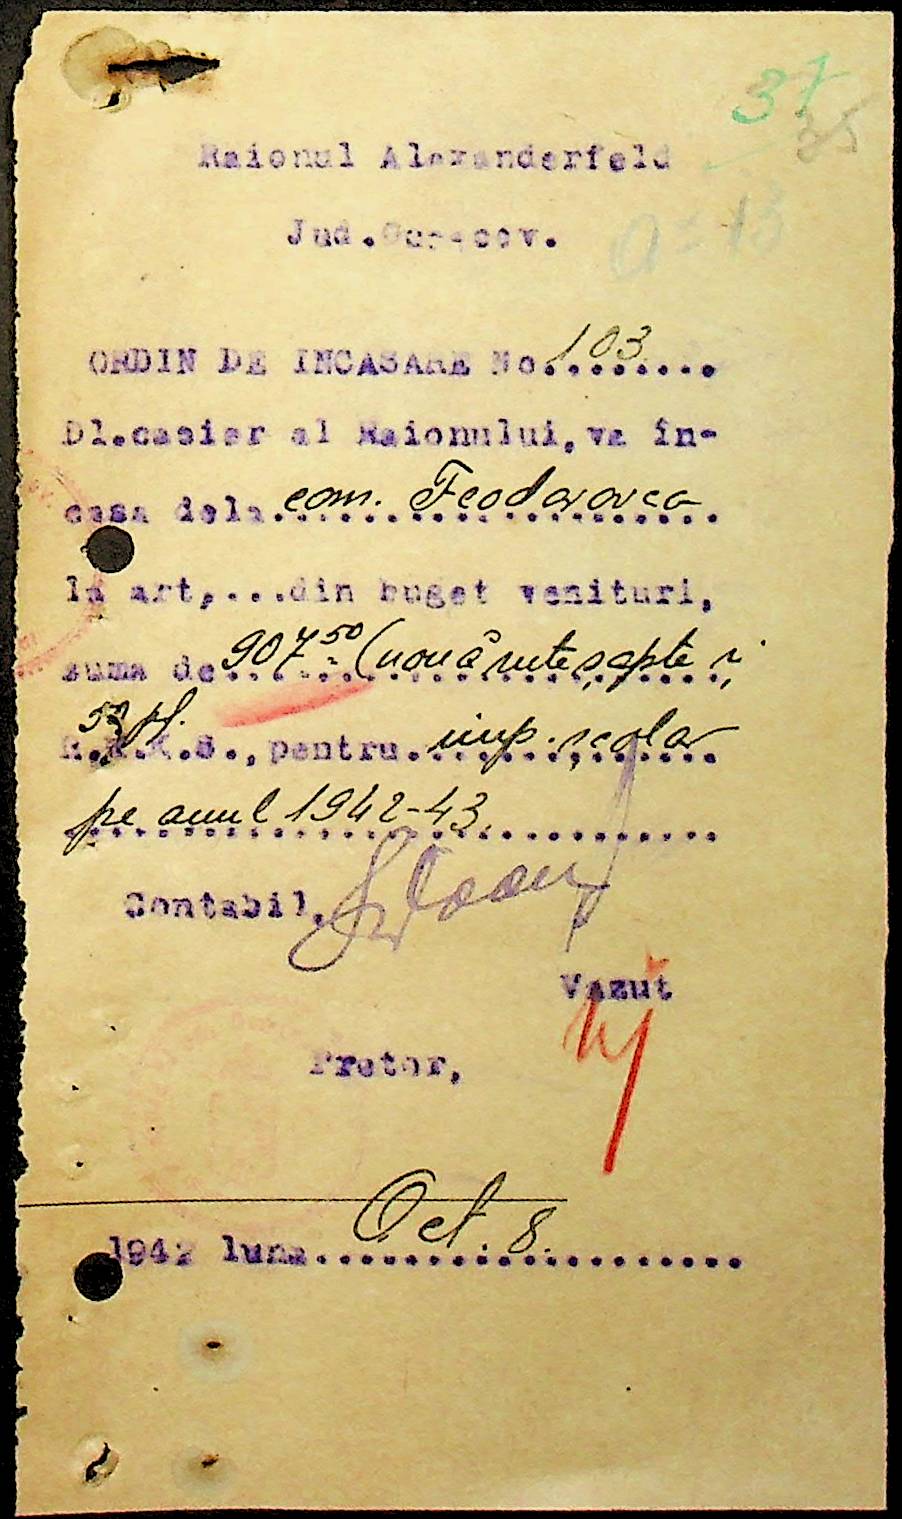 37
35
Raionul Alexanderfeld
Jud.Oceacov.
ORDIN DE INCASARE No.103
Dl.casier al Raionului,va în-
casa dela com. Feodorovca
la art,...din buget venituri,
suma de 907,50 (nouă sute șapte și
50 pf.
R.K.K.S.,pentru imp. școlar
pe anul 1942-43
Contabil,
Vazut
Pretor,
1942 luna Oct. 8.